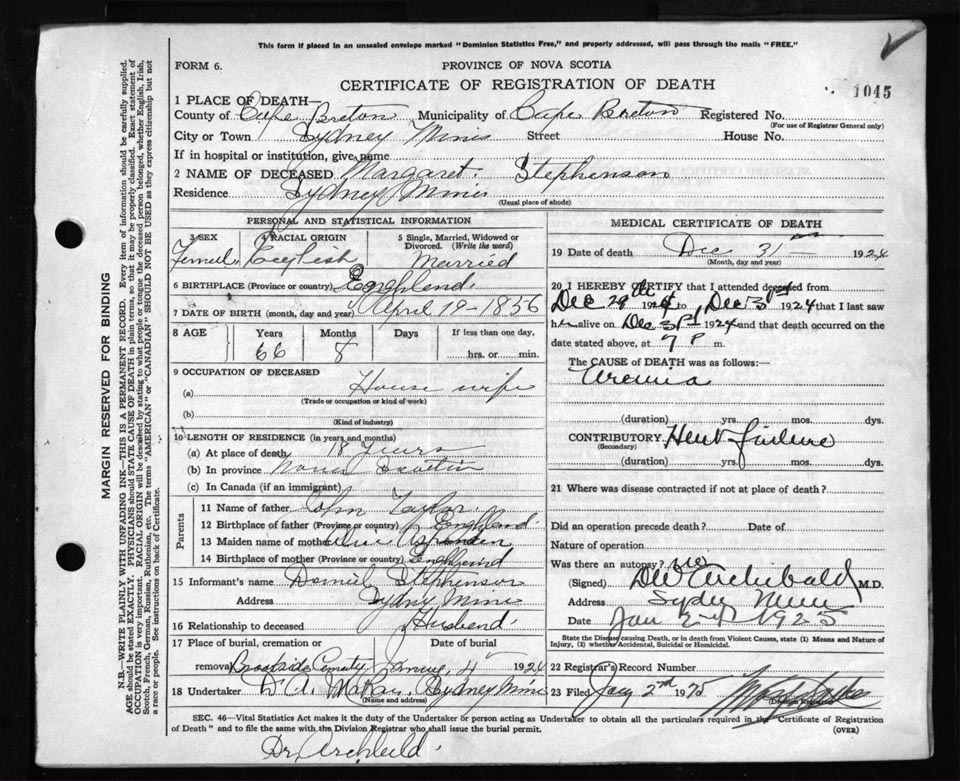 This form if placed in an unsealed envelope marked "Dominion Statistics Free," and properly addressed, will pass through the mails "FREE."
FORM 6.
PROVINCE OF NOVA SCOTIA
CERTIFICATE OF REGISTRATION OF DEATH
1045
1 PLACE OF DEATH—
County of Cape Breton Municipality of Cape Breton Registered No.
(For use of Registrar General only)
City or Town Sydney Mines Street House No.
If in hospital or institution, give name
2 NAME OF DECEASED Margaret Stephenson
Residence Sydney Mines
(Usual place of abode)
PERSONAL AND STATISTICAL INFORMATION
3 SEX 4 RACIAL ORIGIN 5 Single, Married, Widowed or Divorced. (Write the word)
Female English Married
6 BIRTHPLACE (Province or country) England
7 DATE OF BIRTH (month, day and year) April 19-1856
8 AGE Years Months Days If less than one day,
66 8 hrs. or min.
9 OCCUPATION OF DECEASED
(a) House wife
(Trade or occupation or kind of work)
(b)
(Kind of industry)
10 LENGTH OF RESIDENCE (in years and months)
(a) At place of death 18 years
(b) In province Nova Scotia
(c) In Canada (if an immigrant)
Parents
11 Name of father John Taylor
12 Birthplace of father (Province or country) England
13 Maiden name of mother
14 Birthplace of mother (Province or country) England
15 Informant's name Daniel Stephenson
Address Sydny Mines
16 Relationship to deceased Husbend
17 Place of burial, cremation or removal Date of burial
Brookside 4 1924
18 Undertaker Sydney Mines
(Name and address)
MEDICAL CERTIFICATE OF DEATH
19 Date of death Dec 31 1924
(Month, day and year)
20 I HEREBY CERTIFY that I attended deceased from
Dec 29th 1924 to Dec 31st 1924 that I last saw
her alive on Dec 31st 1924 and that death occurred on the
date stated above, at 7 P m.
The CAUSE of DEATH was as follows:
Uremia
(duration) yrs. mos. dys.
CONTRIBUTORY Heart failure
(Secondary)
(duration) yrs. mos. dys.
21 Where was disease contracted if not at place of death?
Did an operation precede death? Date of
Nature of operation
Was there an autopsy? no
(Signed) DW Archibald M.D.
Address Sydney Mines
Date Jan 2nd 1925
State the Disease causing Death, or in death from Violent Causes, state (1) Means and Nature of Injury, (2) whether Accidental, Suicidal or Homicidal.
22 Registrar's Record Number
23 Filed Jany 2nd 1925
(Division Registrar)
SEC. 46—Vital Statistics Act makes it the duty of the Undertaker or person acting as Undertaker to obtain all the particulars required in the Certificate of Registration
of Death" and to file the same with the Division Registrar who shall issue the burial permit. (OVER)
Dr. Archibald
MARGIN RESERVED FOR BINDING
N.B.—WRITE PLAINLY WITH UNFADING INK—THIS IS A PERMANENT RECORD. Every item of information should be carefully supplied.
AGE should be stated EXACTLY. PHYSICIANS should STATE CAUSE OF DEATH in plain terms, so that it may be properly classified. Exact statement of
OCCUPATION is very important. RACIAL ORIGIN will be described by stating to what people or tongue the deceased person belonged, whether English, Irish,
Scotch, French, German, Russian, Ruthenian, etc. The terms "AMERICAN" or "CANADIAN" SHOULD NOT BE USED as they express citizenship but not
a race or people. See instructions on back of Certificate.